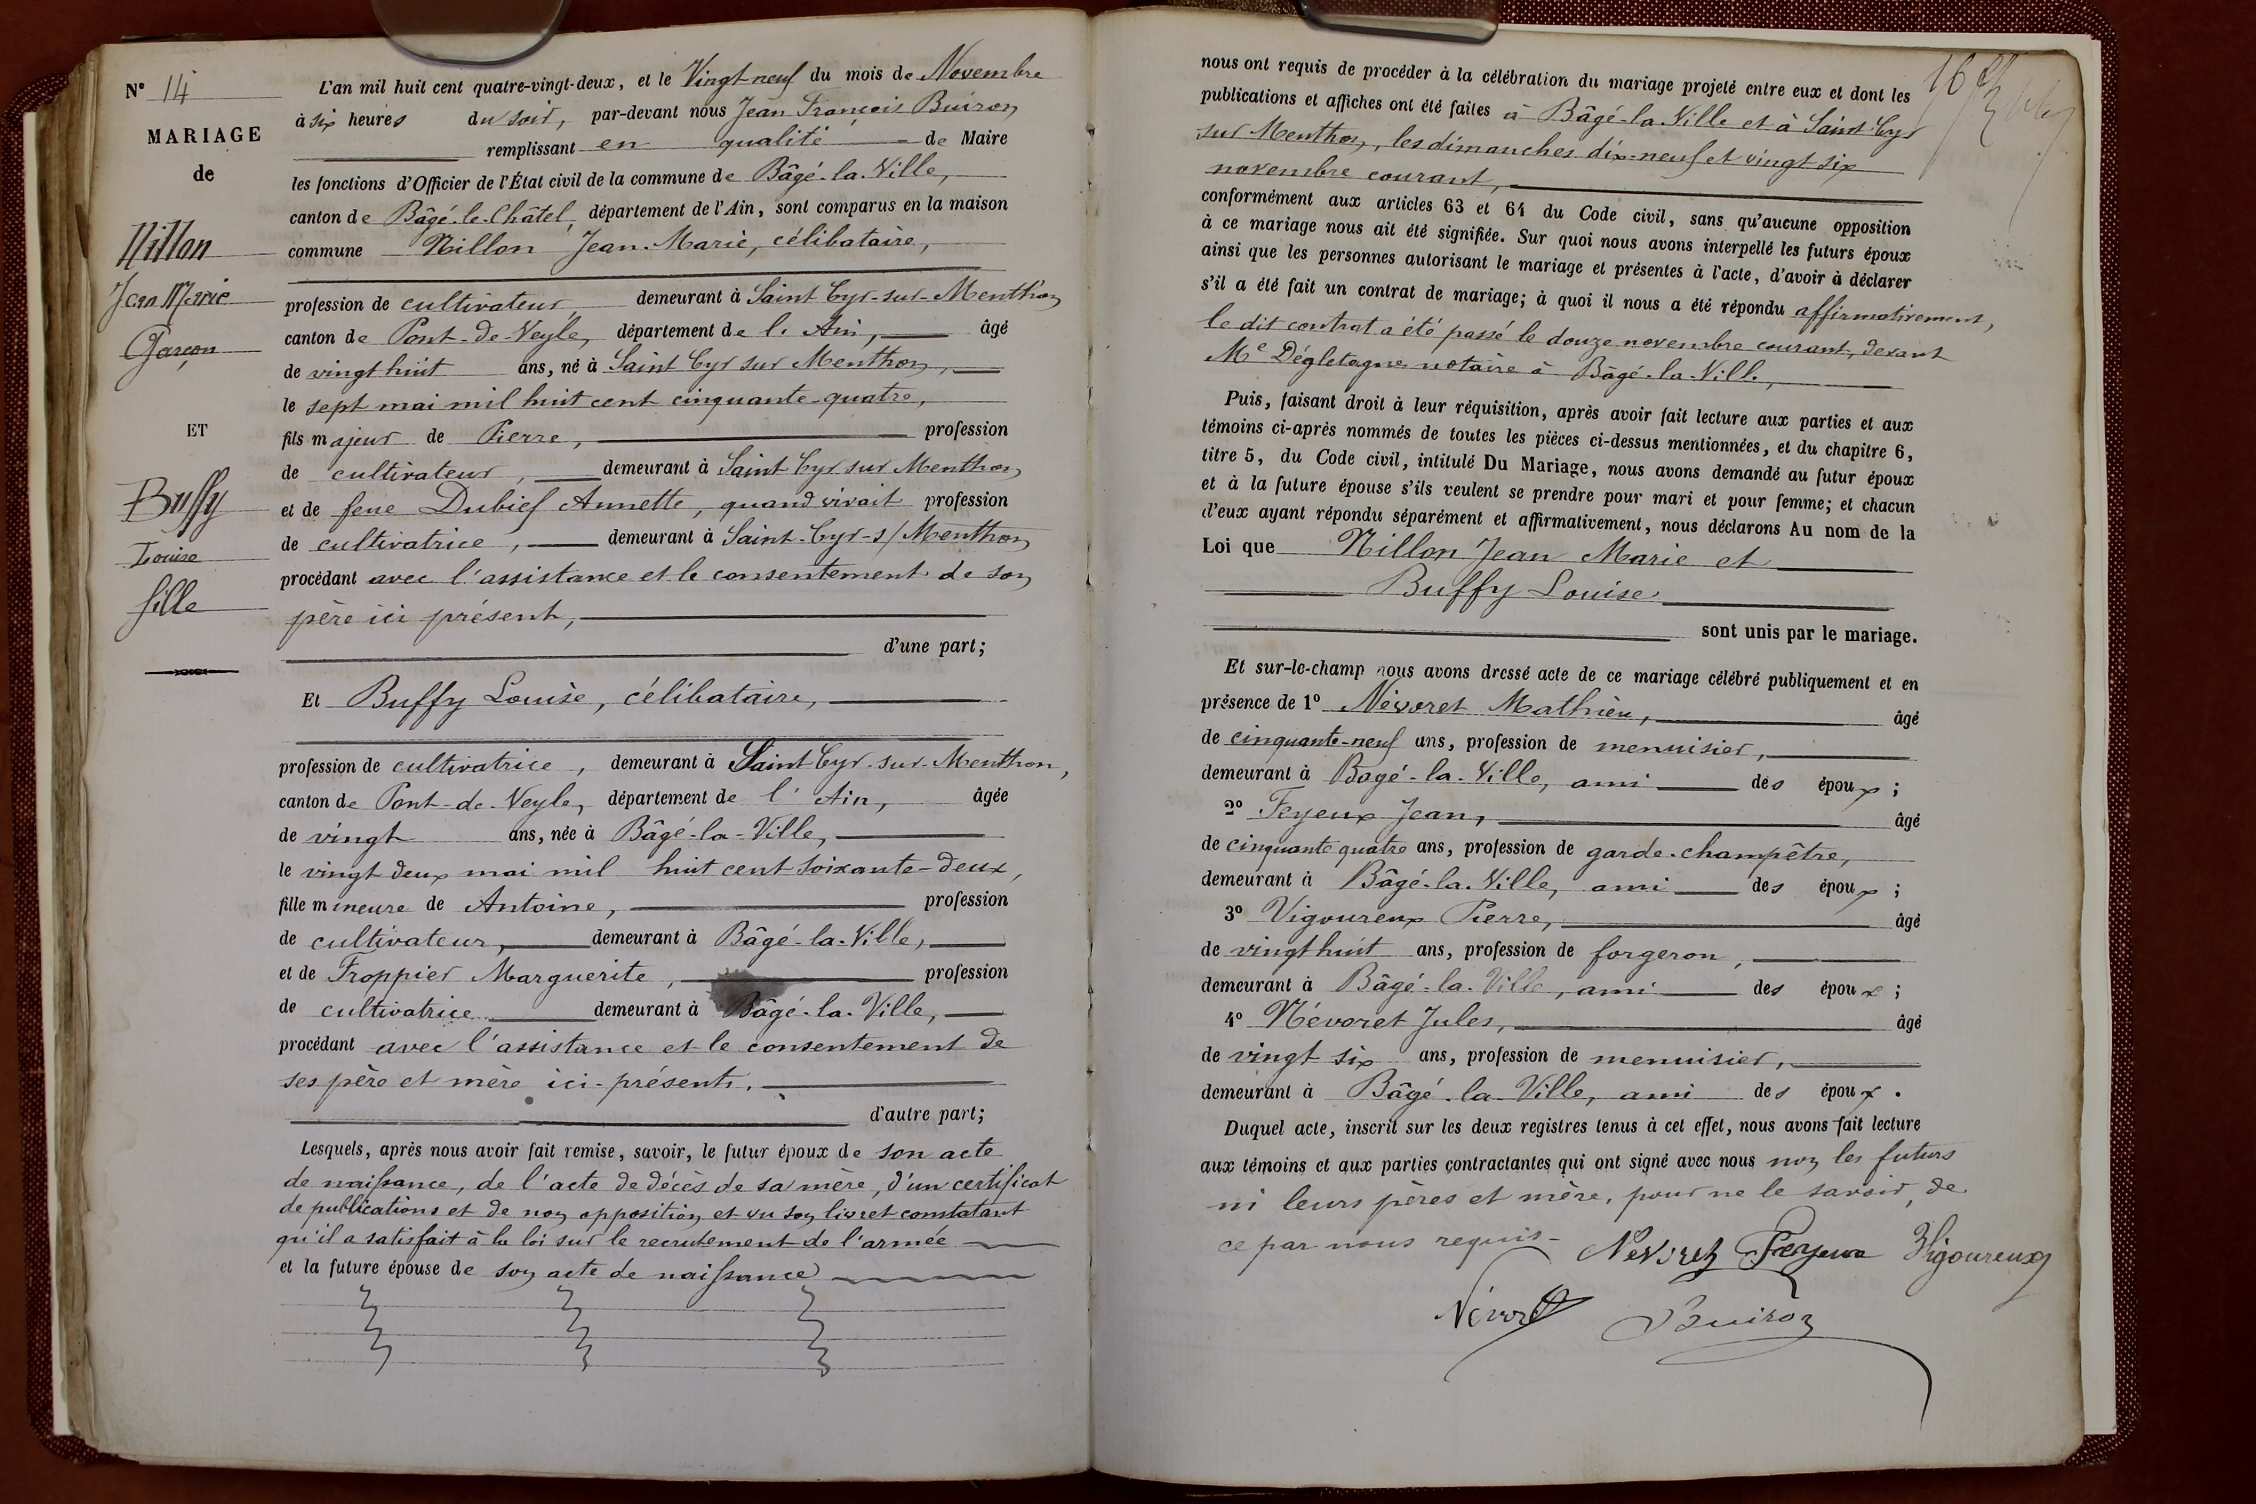 N° 14
MARIAGE
de
Nillon
Jean Marie
Garçon
ET
Buffy
Louise
fille
L'an mil huit cent quatre-vingt-deux, et le Vingt-neuf du mois de Novembre
à six heures du soir, par-devant nous Jean François Buiron
remplissant en qualité de Maire
les fonctions d'Officier de l'État civil de la commune de Bâgé-la-Ville,
canton de Bâgé-le-Châtel, département de l'Ain, sont comparus en la maison
commune Nillon Jean-Marie, célibataire,
profession de cultivateur demeurant à Saint Cyr-sur-Menthon
canton de Pont-de-Veyle, département de l'Ain, âgé
de vingt huit ans, né à Saint Cyr sur Menthon,
le sept mai mil huit cent cinquante-quatre,
fils majeur de Pierre, profession
de cultivateur, demeurant à Saint Cyr sur Menthon
et de feue Dubief Annette, quand vivait profession
de cultivatrice, demeurant à Saint-Cyr-s/Menthon
procédant avec l'assistance et le consentement de son
père ici présent,
d'une part;
Et Buffy Louise, célibataire,
profession de cultivatrice, demeurant à Saint Cyr-sur-Menthon,
canton de Pont-de-Veyle, département de l'Ain, âgée
de vingt ans, née à Bâgé-la-Ville,
le vingt deux mai mil huit cent soixante-deux,
fille mineure de Antoine, profession
de cultivateur, demeurant à Bâgé-la-Ville,
et de Froppier Marguerite, profession
de cultivatrice demeurant à Bâgé-la-Ville,
procédant avec l'assistance et le consentement de
ses père et mère ici-présents.
d'autre part;
Lesquels, après nous avoir fait remise, savoir, le futur époux de son acte
de naissance, de l'acte de décès de sa mère, d'un certificat
de publications et de non opposition et vu son livret constatant
qu'il a satisfait à la loi sur le recrutement de l'armée
et la future épouse de son acte de naissance
nous ont requis de procéder à la célébration du mariage projeté entre eux et dont les
publications et affiches ont été faites à Bâgé-la-Ville et à Saint Cyr
sur Menthon, les dimanches dix-neuf et vingt six
novembre courant,
conformément aux articles 63 et 64 du Code civil, sans qu'aucune opposition
à ce mariage nous ait été signifiée. Sur quoi nous avons interpellé les futurs époux
ainsi que les personnes autorisant le mariage et présentes à l'acte, d'avoir à déclarer
s'il a été fait un contrat de mariage; à quoi il nous a été répondu affirmativement,
le dit contrat a été passé le douze novembre courant, devant
Me Dégletagne notaire à Bâgé-la-Ville,
Puis, faisant droit à leur réquisition, après avoir fait lecture aux parties et aux
témoins ci-après nommés de toutes les pièces ci-dessus mentionnées, et du chapitre 6,
titre 5, du Code civil, intitulé Du Mariage, nous avons demandé au futur époux
et à la future épouse s'ils veulent se prendre pour mari et pour femme; et chacun
d'eux ayant répondu séparément et affirmativement, nous déclarons Au nom de la
Loi que Nillon Jean Marie et
Buffy Louise
sont unis par le mariage.
Et sur-le-champ nous avons dressé acte de ce mariage célébré publiquement et en
présence de 1° Névoret Mathieu, âgé
de cinquante-neuf ans, profession de menuisier,
demeurant à Bagé-la-Ville, ami des époux;
2° Feyeux Jean, âgé
de cinquante quatre ans, profession de garde-champêtre,
demeurant à Bâgé-la-Ville, ami des époux;
3° Vigoureux Pierre, âgé
de vingt huit ans, profession de forgeron,
demeurant à Bâgé-la-Ville, ami des époux;
4° Névoret Jules, âgé
de vingt six ans, profession de menuisier,
demeurant à Bâgé-la-Ville, ami des époux.
Duquel acte, inscrit sur les deux registres tenus à cet effet, nous avons fait lecture
aux témoins et aux parties contractantes qui ont signé avec nous non les futurs
ni leurs pères et mère, pour ne le savoir, de
ce par nous requis-
Névoret Feyeux Vigoureux
Névoret Buiron